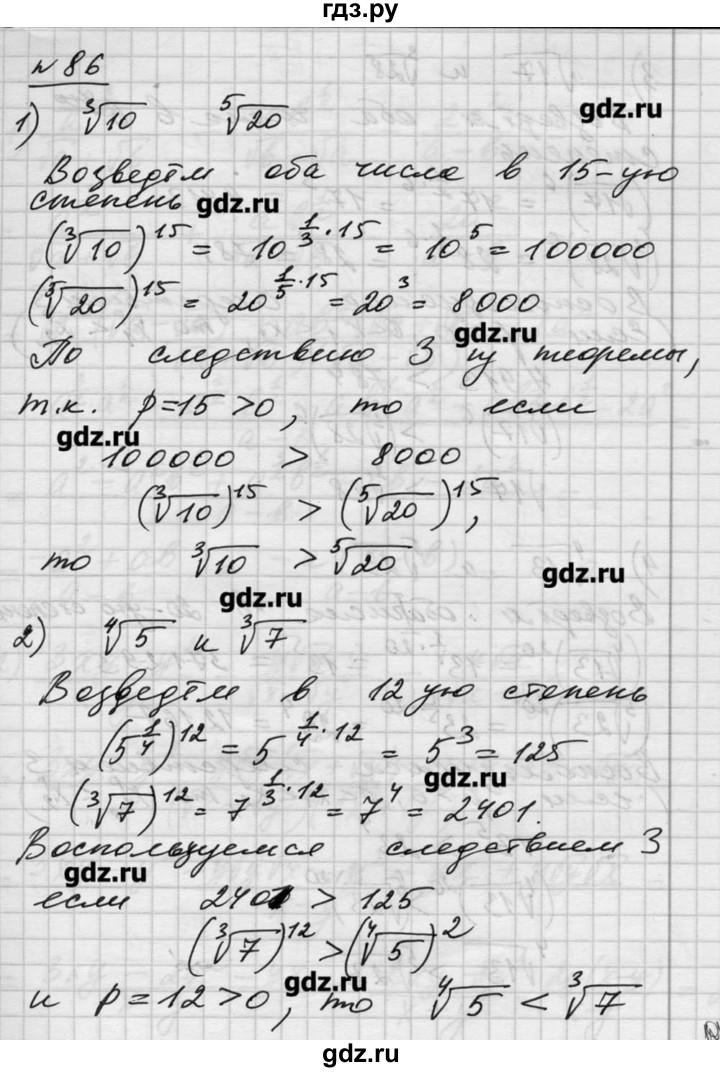 гдз.ру
№ 86
1) ∛10 ⁵√20
gdz.ru
Возведём оба числа в 15-ую
степень gdz.ru
(∛10)¹⁵ = 10^(1/3·15) = 10⁵ = 100000
(⁵√20)¹⁵ = 20^(1/5·15) = 20³ = 8000
gdz.ru
По следствию 3 из теоремы,
т.к. p=15>0, то если
gdz.ru
100000 > 8000
(∛10)¹⁵ > (⁵√20)¹⁵,
то ∛10 > ⁵√20
gdz.ru
gdz.ru
2) ⁴√5 и ∛7
Возведём в 12ую степень
(5^(1/4))¹² = 5^(1/4·12) = 5³ = 125
gdz.ru
(∛7)¹² = 7^(1/3·12) = 7⁴ = 2401.
Воспользуемся следствием 3
gdz.ru
если 2401 > 125
(∛7)¹² > (⁴√5)²
gdz.ru
и p=12>0, то ⁴√5 < ∛7
gdz.ru